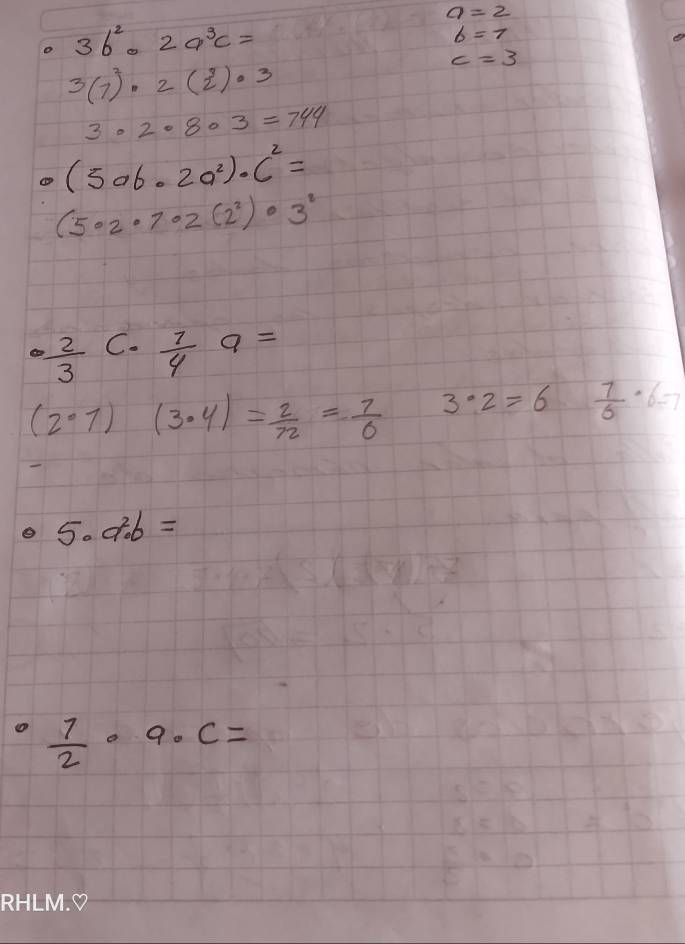 • 3b² • 2a³c =
a = 2
b = 1
c = 3
3(1)² • 2(2³) • 3
3 • 2 • 8 • 3 = 144
• (5ab • 2a²) • C² =
(5 • 2 • 1 • 2(2²) • 3²
• 2/3 C • 1/4 a =
(2•1) (3•4) = 2/12 = 1/6 3•2 = 6 1/6 • 6 = 1
• 5 • a² • b =
• 1/2 • a • c =
RHLM.♡